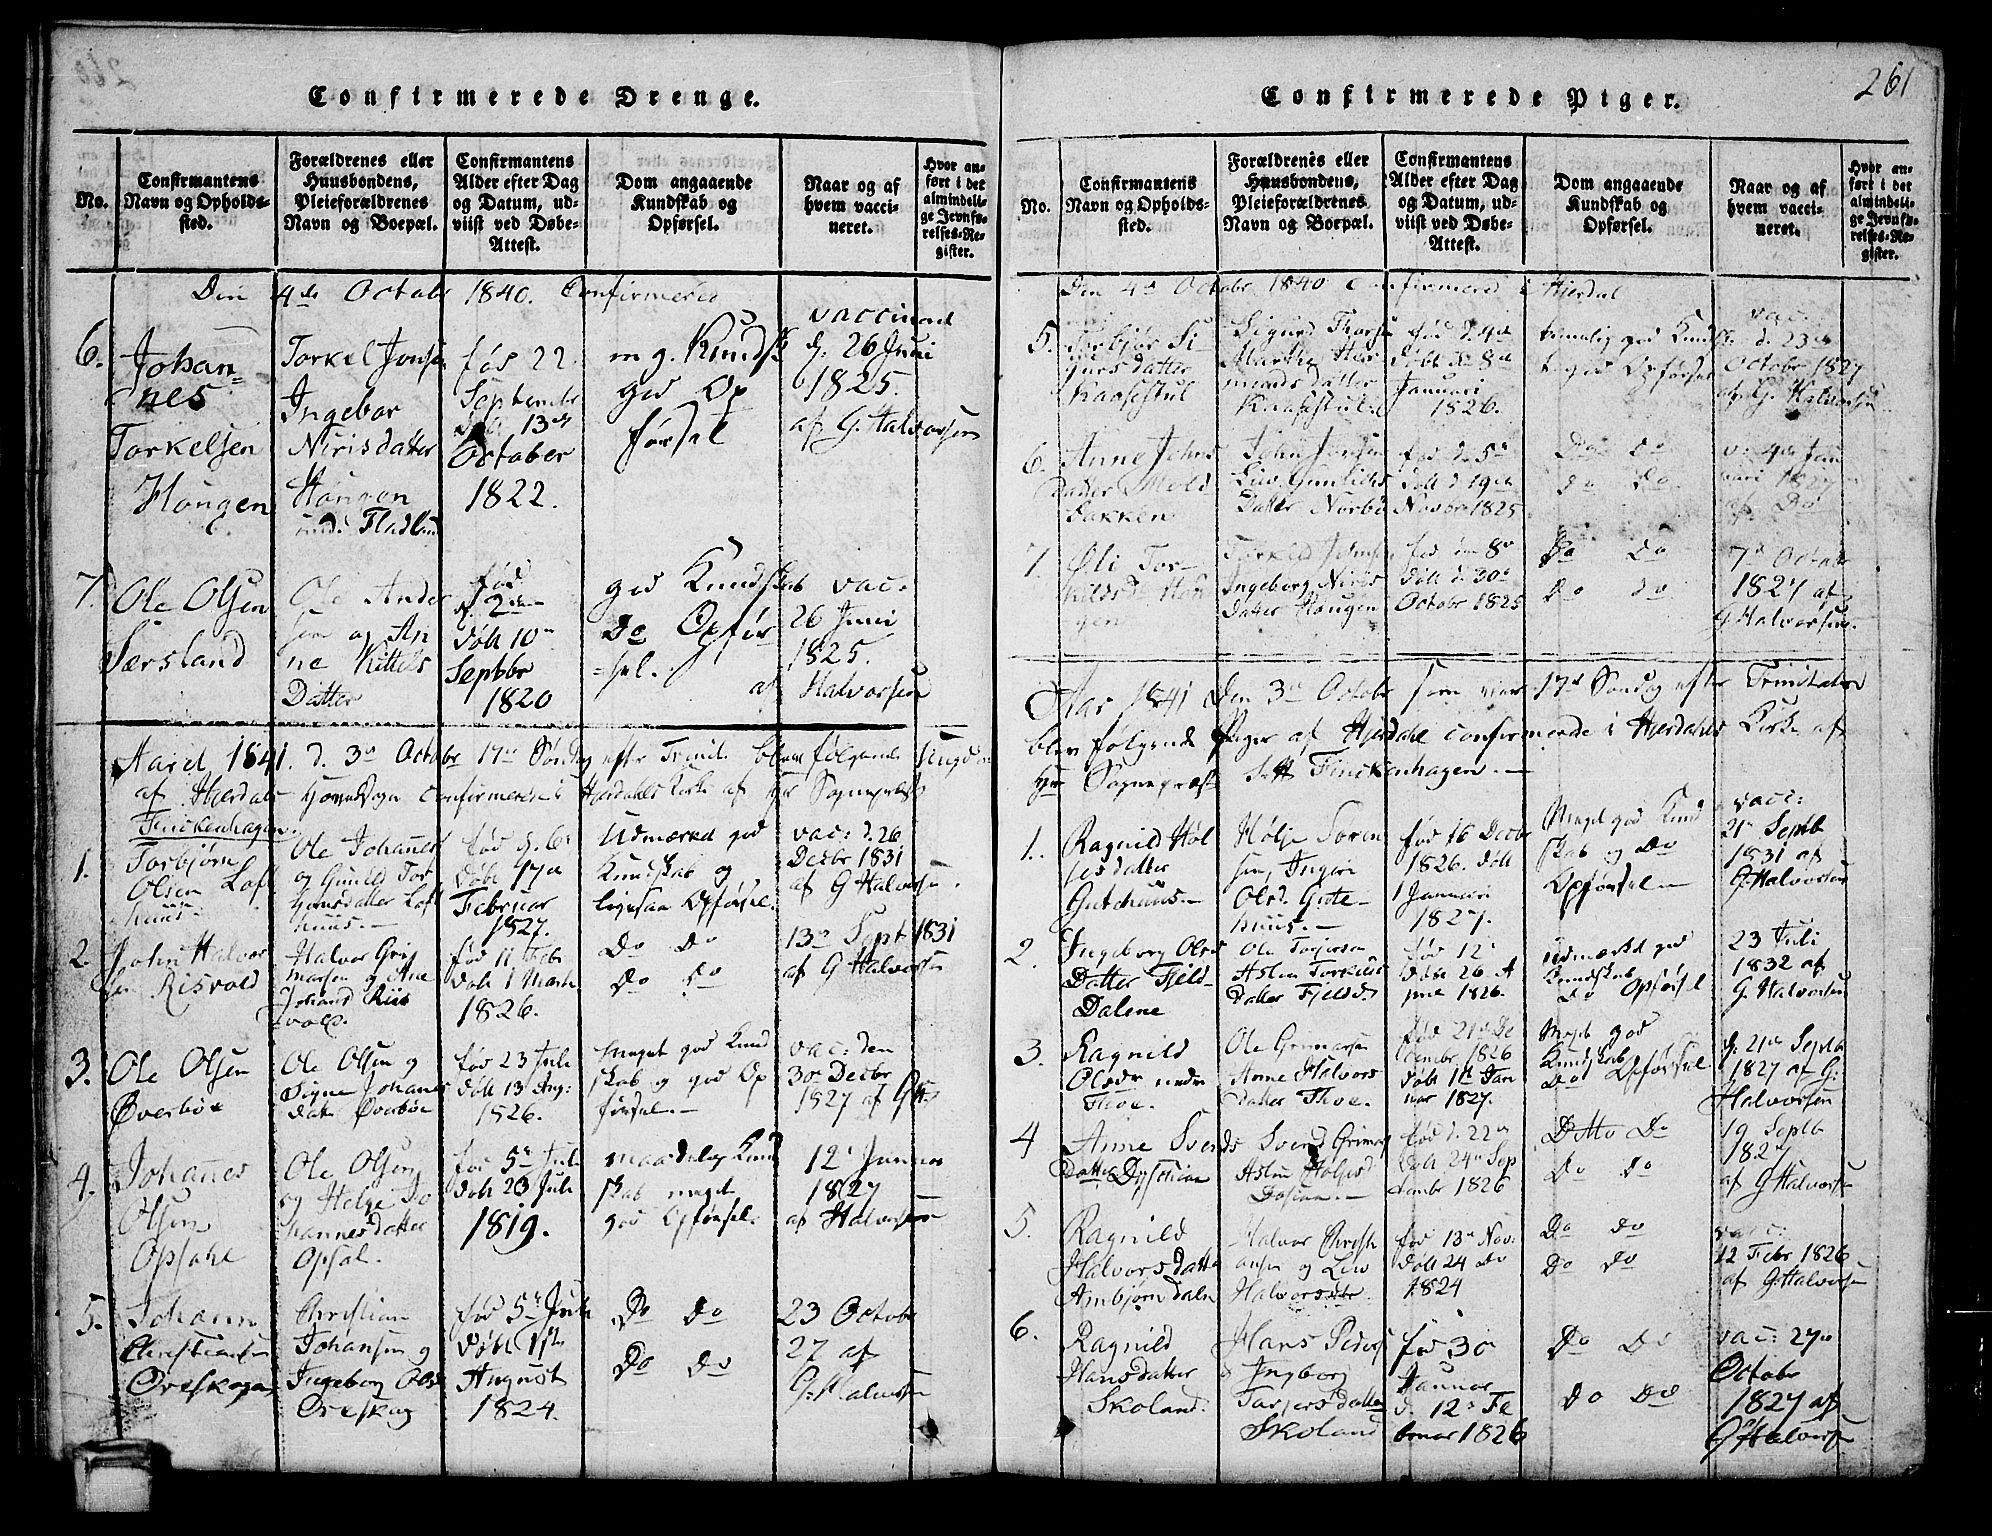 Confirmerede Drenge.
No.
Confirmantens
Navn og Opholds-
sted.
Forældrenes eller
Huusbondens,
Pleieforældrenes
Navn og Boepæl.
Confirmantens
Alder efter Dag
og Datum, ud-
viist ved Døbe-
Attest.
Dom angaaende
Kundskab og
Opførsel.
Naar og af
hvem vacci-
neret.
Hvor an-
ført i det
almindeli-
ge Jevnfø-
relses-Re-
gister.
Den 4de Octobr 1840. Confirmered
6.
Johan-
nes
Torkelsen
Hougen
Torkel Jonsen
Ingebor
Nirisdatter
Hougen
under Fladlund
fød 22
September
døbt 13de
October
1822.
m g. Kundsk
god Op
førsel
vaccinered
d. 26 Juni
1825.
af G. Halvorsen
7.
Ole Olsen
Særsland
Ole Ander
sen og An
ne Kittels
Datter
fød
d. 2den
døbt 10de
Septbr
1820
god Kundskab
Do Opfør
=sel.
vac.
26 Juni
1825.
af Halvorsen
Aaret 1841. d. 3de Octobr 17de Søndag efter Trinit. blev følgende Ungdom
af Hjerdals Hovedsogn confirmerede i Hjerdahls Kirke af Hr Sognepræst
Finckenhagen.
1.
Torbjørn
Olsen Loft
huus.
Ole Johanes
og Gunild Tor
Loft
huus.
fød d. 6te
døbt 17de
Februar
1827.
Udmærked god
Kundskab og
ligesaa Opførsel.
vac: d. 26
Decbr 1831
af G Halvorsen.
2.
John Halvor
sen Risvold
Halvor Gri
marsen og Ane
Johansd Riis
vold.
fød 11 Feb
døbt 1 Marts
1826.
Do Do
Do Do
13de Sept 1831
af G Halvorsen
3.
Ole Olsen
Øverbøe
Ole Olsen og
Signe Johanes
dat. Øverbøe
fød 23 Juli
døbt 13 Aug:
1826.
Meget god Kund
skab og god Op
førsel.
vac: den
30 Decbr
1827 af GH.
4.
Johanes
Olsen
Opsahl
Ole Olsen
og Helge Jo
hannesdatter
Opsal.
fød 5te Juli
døbt 23 Juli
1819.
maadelig Kund
skab meget
god Opførsel.
12te Januar
1827
af Halvorsen
5.
Johann
Christiansen
Oreskoug
Christian
Johansen og
Ingeborg Olsd
Oreskog
fød 5te Juli
døbt 1ste
August
1824.
Do Do
Do Do
23 Octobr
27 af
G. Halvorsen
Confirmerede Piger.
261
No.
Confirmantens
Navn og Opholds-
sted.
Forældrenes eller
Huusbondens,
Pleieforældrenes
Navn og Boepæl.
Confirmantens
Alder efter Dag
og Datum, ud-
viist ved Døbe-
Attest.
Dom angaaende
Kundskab og
Opførsel.
Naar og af
hvem vacci-
neret.
Hvor an-
ført i det
almindeli-
ge Jevnfø-
relses-Re-
gister.
Den 4de Octobr 1840 Confirmered i Hjerdal
5.
Torbjør Si
gursdatter
Kaasestul
Sigurd Thors
Marthe Har
mendsdatter
Kaasestul.
fød d. 4de
døbt d. 8de
Januari
1826.
temmelig god Kundsk.
god Opførsel
vac.
d. 23de
Octobr 1827
af G. Halvorsen
6.
Anne Johns
datter Mold
bakken
John Jonsen
Liv Gunleiks
Datter Norbø
fød d. 5de
døbt d. 19de
Novbr 1825
Do Do
Do Do
v. 4de Jan
uari 1827
af Do
7.
Øli Tor-
kilds d. Hou
gen
Torkild Johnsen
Ingeborg Niris
datter Hougen
fød den 8de
døbt d. 30de
Octobr 1825
Do Do
Do Do
7de Octobr
1827 af
G Halvorsen.
Aar 1841 den 3de Octobr som var 17de Søndag efter Trinitatis
blev følgende Piger af Hjerdahl confirmerede i Hjerdahls Kirke af
Hr Sognepræst Finckenhagen.
1.
Ragnild Høl
jesdatter
Gutehuus
Hølje Soren
sen, Ingeri
Olsd. Gute-
huus.
fød 16 Decbr
1826. døbt
1 Januari
1827.
Meget god Kund
skab og Do
Opførsel
vac:
21de Septb
1831 af
G. Halvorsen
2.
Ingeborg Ols
Datter Fjeld-
Dalene
Ole Torjersen
Aslau Torkils
datter Fjeldd.
fød 12te
døbt 26 A
1826.
udmærket god
Kundskab
Do Opførsel
23 Juli
1832 af
G. Halvorsen
3.
Ragnild
Olsdr nedre
Thoe.
Ole Grimarsen
Anne Halvors
datter Thoe.
fød 21de De
cember 1826
døbt 1te Jan
uar 1827.
Meget god
Kundskab
Do Opførsel
d. 21de Septb
1827 af G:
Halvorsen
4
Anne Svends
Datter
Svend Grimars
Aslau Høljesd
fød d. 22de
døbt 24de Sep
tembr 1826
Ditto Do
Do Do
19 Septb
1827
af G Halvorsen
5.
Ragnild
Halvorsdatter
Ambjørndaln
Halvor Christi
ansen og Liv
Halvorsdtr
fød 13de Nov:
døbt 24 Do
1824
Do Do
Do Do
vac:
12 Febr 1826
af G. Halvorsen
6.
Ragnild
Hansdatter
Skoland.
Hans Peders
& Ingborg
Torjersdatter
Skoland
fød 30te
Januar
d. 12te Fe
bruar 1826
Do Do
Do Do
vac: 27de
Octobr
1827 af
G Halvorsen